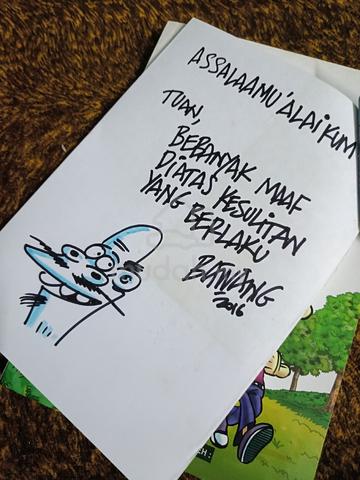 ASSALAAMU'ALAIKUM
TUAN,
BEBANYAK MAAF
DIATAS KESULITAN
YANG BERLAKU
BAWANG
2016